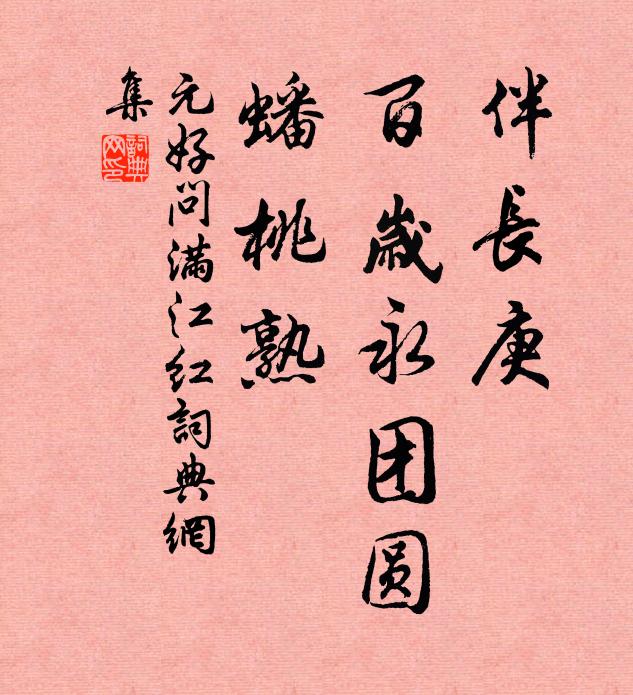 伴長庚
百歲永团圆
蟠桃熟
元好問滿江红詞典網
集
詞典网印